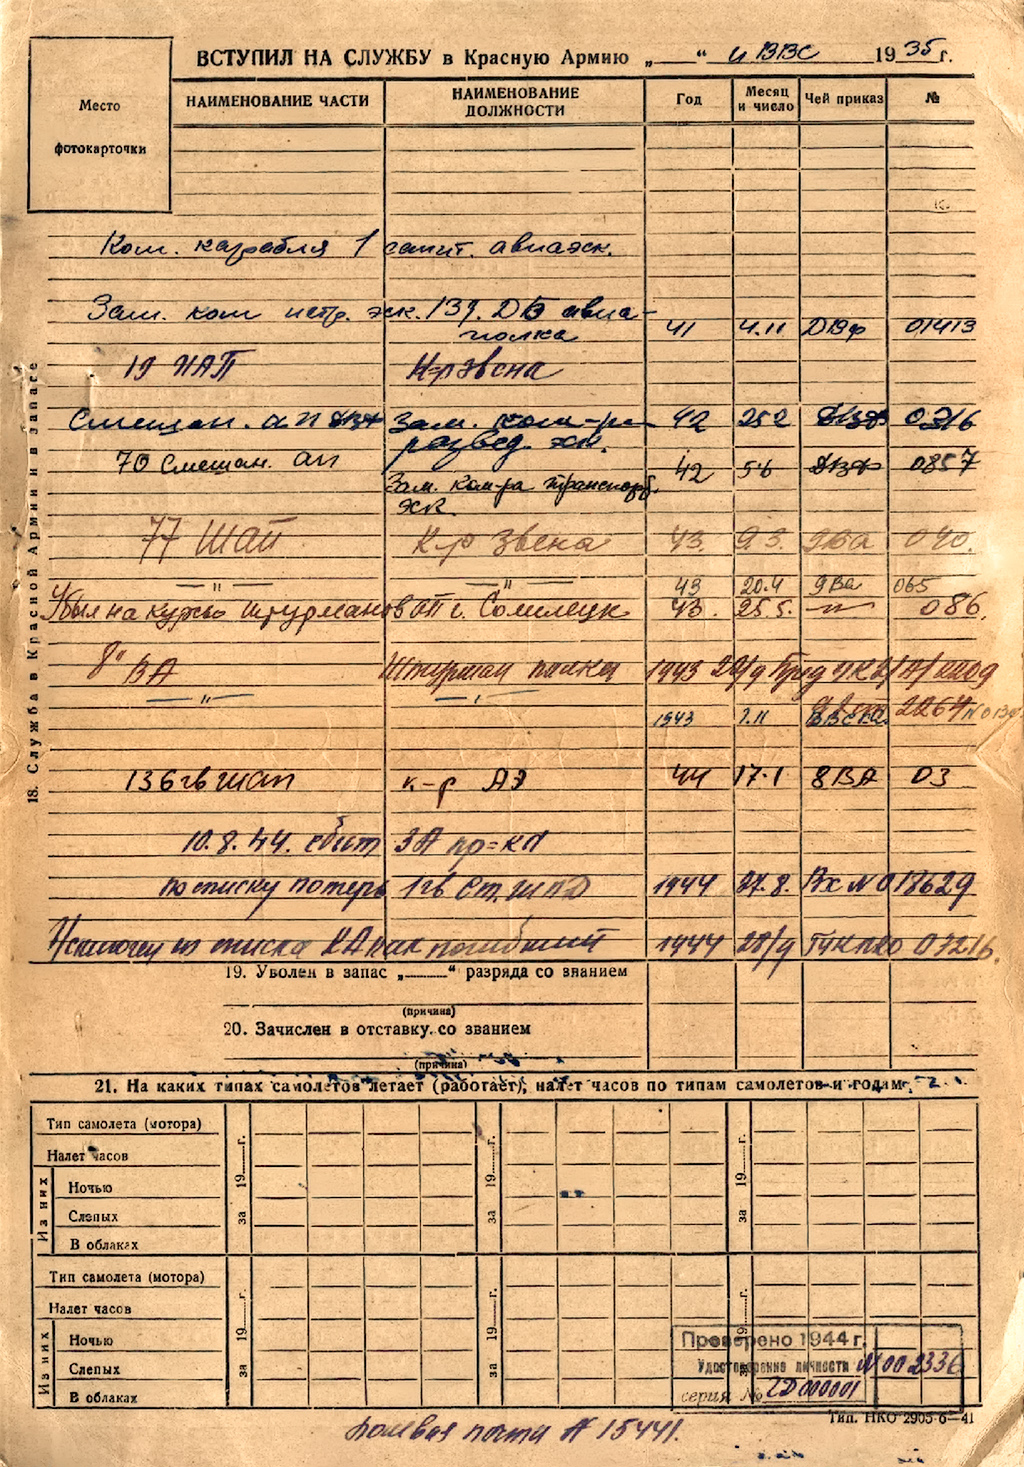 ВСТУПИЛ НА СЛУЖБУ в Красную Армию „ “ и ВВС 1935 г.
Место
фотокарточки
НАИМЕНОВАНИЕ ЧАСТИ
НАИМЕНОВАНИЕ
ДОЛЖНОСТИ
Год
Месяц
и число
Чей приказ
№
Ком. карабля 1 санит. авиаэск.
Зам. ком истр. эск. 139. ДБ авиа-
полка 41 4.11 ДВФ 01413
19 ИАП К-р звена
Смешан. ап Зам. ком-ра 42 252 0316
развед. эск.
70 Смешан. ап 42 5.6 0857
Зам. Ком-ра транспорт.
эск.
77 ШАП К-р Звена 43. 9.3. 9ва 040.
— " — — " — 43 20.4 9Ва 065
Убыл на курсы штурманов г. 43. 25.5. — " — 086.
8" ВА Штурман полка 1943
— " — — " — 2264
1943 7.11
136 гв шап к-р АЭ 44 17.1 8ВА 03
10.8.44. сбит ЗА пр-ка
по списку потерь 1гв Ст. ш п Д 1944 27.8. Вх № 018629
Исключен из списка КА как погибший 1944 28/9 ГУК НКО 03216.
18. Служба в Красной Армии и в запасе
19. Уволен в запас „ “ разряда со званием
(причина)
20. Зачислен в отставку со званием
(причина)
21. На каких типах самолетов летает (работает), налет часов по типам самолетов и годам
Тип самолета (мотора)
Налет часов
Из них
Ночью
Слепых
В облаках
за 19 г.
за 19 г.
за 19 г.
Тип самолета (мотора)
Налет часов
Из них
Ночью
Слепых
В облаках
за 19 г.
за 19 г.
за 19 г.
Проверено 1944 г.
Удостоверение личности № 002336
серия № ГД 000001
Тип. НКО 2905 6—41
полевая почта № 15441.